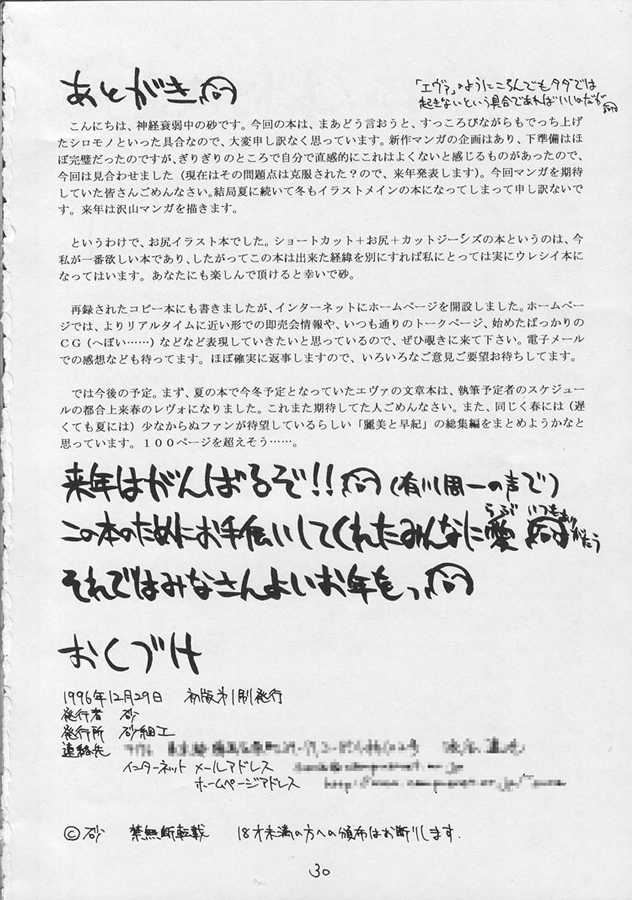 あとがき
「エヴァ」のようにころんでもタダでは
起きないという具合であればいいのだが
こんにちは、神経衰弱中の砂です。今回の本は、まあどう言おうと、すっころびながらもでっち上げ
たシロモノといった具合なので、大変申し訳なく思っています。新作マンガの企画はあり、下準備はほ
ぼ完璧だったのですが、ぎりぎりのところで自分で直感的にこれはよくないと感じるものがあったので、
今回は見合わせました(現在はその問題点は克服された?ので、来年発表します)。今回マンガを期待
していた皆さんごめんなさい。結局夏に続いて冬もイラストメインの本になってしまって申し訳ないで
す。来年は沢山マンガを描きます。
というわけで、お尻イラスト本でした。ショートカット+お尻+カットジーンズの本というのは、今
私が一番欲しい本であり、したがってこの本は出来た経緯を別にすれば私にとっては実にウレシイ本に
なってはいます。あなたにも楽しんで頂けると幸いで砂。
再録されたコピー本にも書きましたが、インターネットにホームページを開設しました。ホームペー
ジでは、よりリアルタイムに近い形での即売会情報や、いつも通りのトークページ、始めたばっかりの
CG(へぼい……)などなど表現していきたいと思っているので、ぜひ覗きに来て下さい。電子メール
での感想なども待ってます。ほぼ確実に返事しますので、いろいろなご意見ご要望お待ちしてます。
では今後の予定。まず、夏の本で今冬予定となっていたエヴァの文章本は、執筆予定者のスケジュー
ルの都合上来春のレヴォになりました。これまた期待してた人ごめんなさい。また、同じく春には(遅
くても夏には)少なからぬファンが待望しているらしい「麗美と早紀」の総集編をまとめようかなと
思っています。100ページを超えそう……。
来年はがんばるぞ!!(有川周一の声で)
この本のためにお手伝いしてくれたみんなに愛 らぶ いつもありがとう
それではみなさんよいお年をっ
おくづけ
1996年12月29日 初版第1刷発行
発行者 砂
発行所 砂細工
連絡先
インターネット メールアドレス
ホームページアドレス
©砂 禁無断転載 18才未満の方への頒布はお断りします.
30